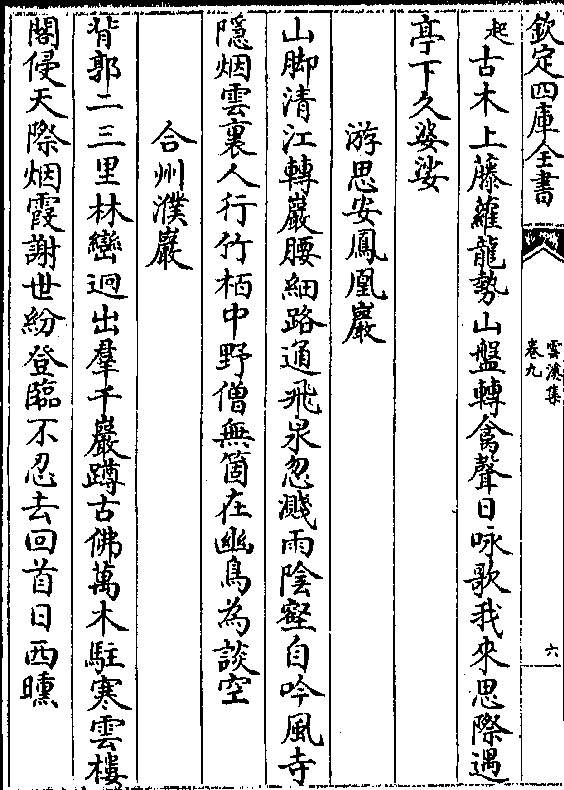 欽定四庫全書
雲溪集
卷九
六
起古木上藤蘿龍勢山盤轉禽聲日咏歌我來思際遇
亭下久婆娑
游思安鳳凰巖
山脚清江轉巖腰細路通飛泉忽濺雨陰壑自吟風寺
隱烟雲裏人行竹栢中野僧無箇在幽鳥為談空
合州濮巖
背郭二三里林巒迥出羣千巖蹲古佛萬木駐寒雲樓
閣侵天際烟霞謝世紛登臨不忍去回首日西曛